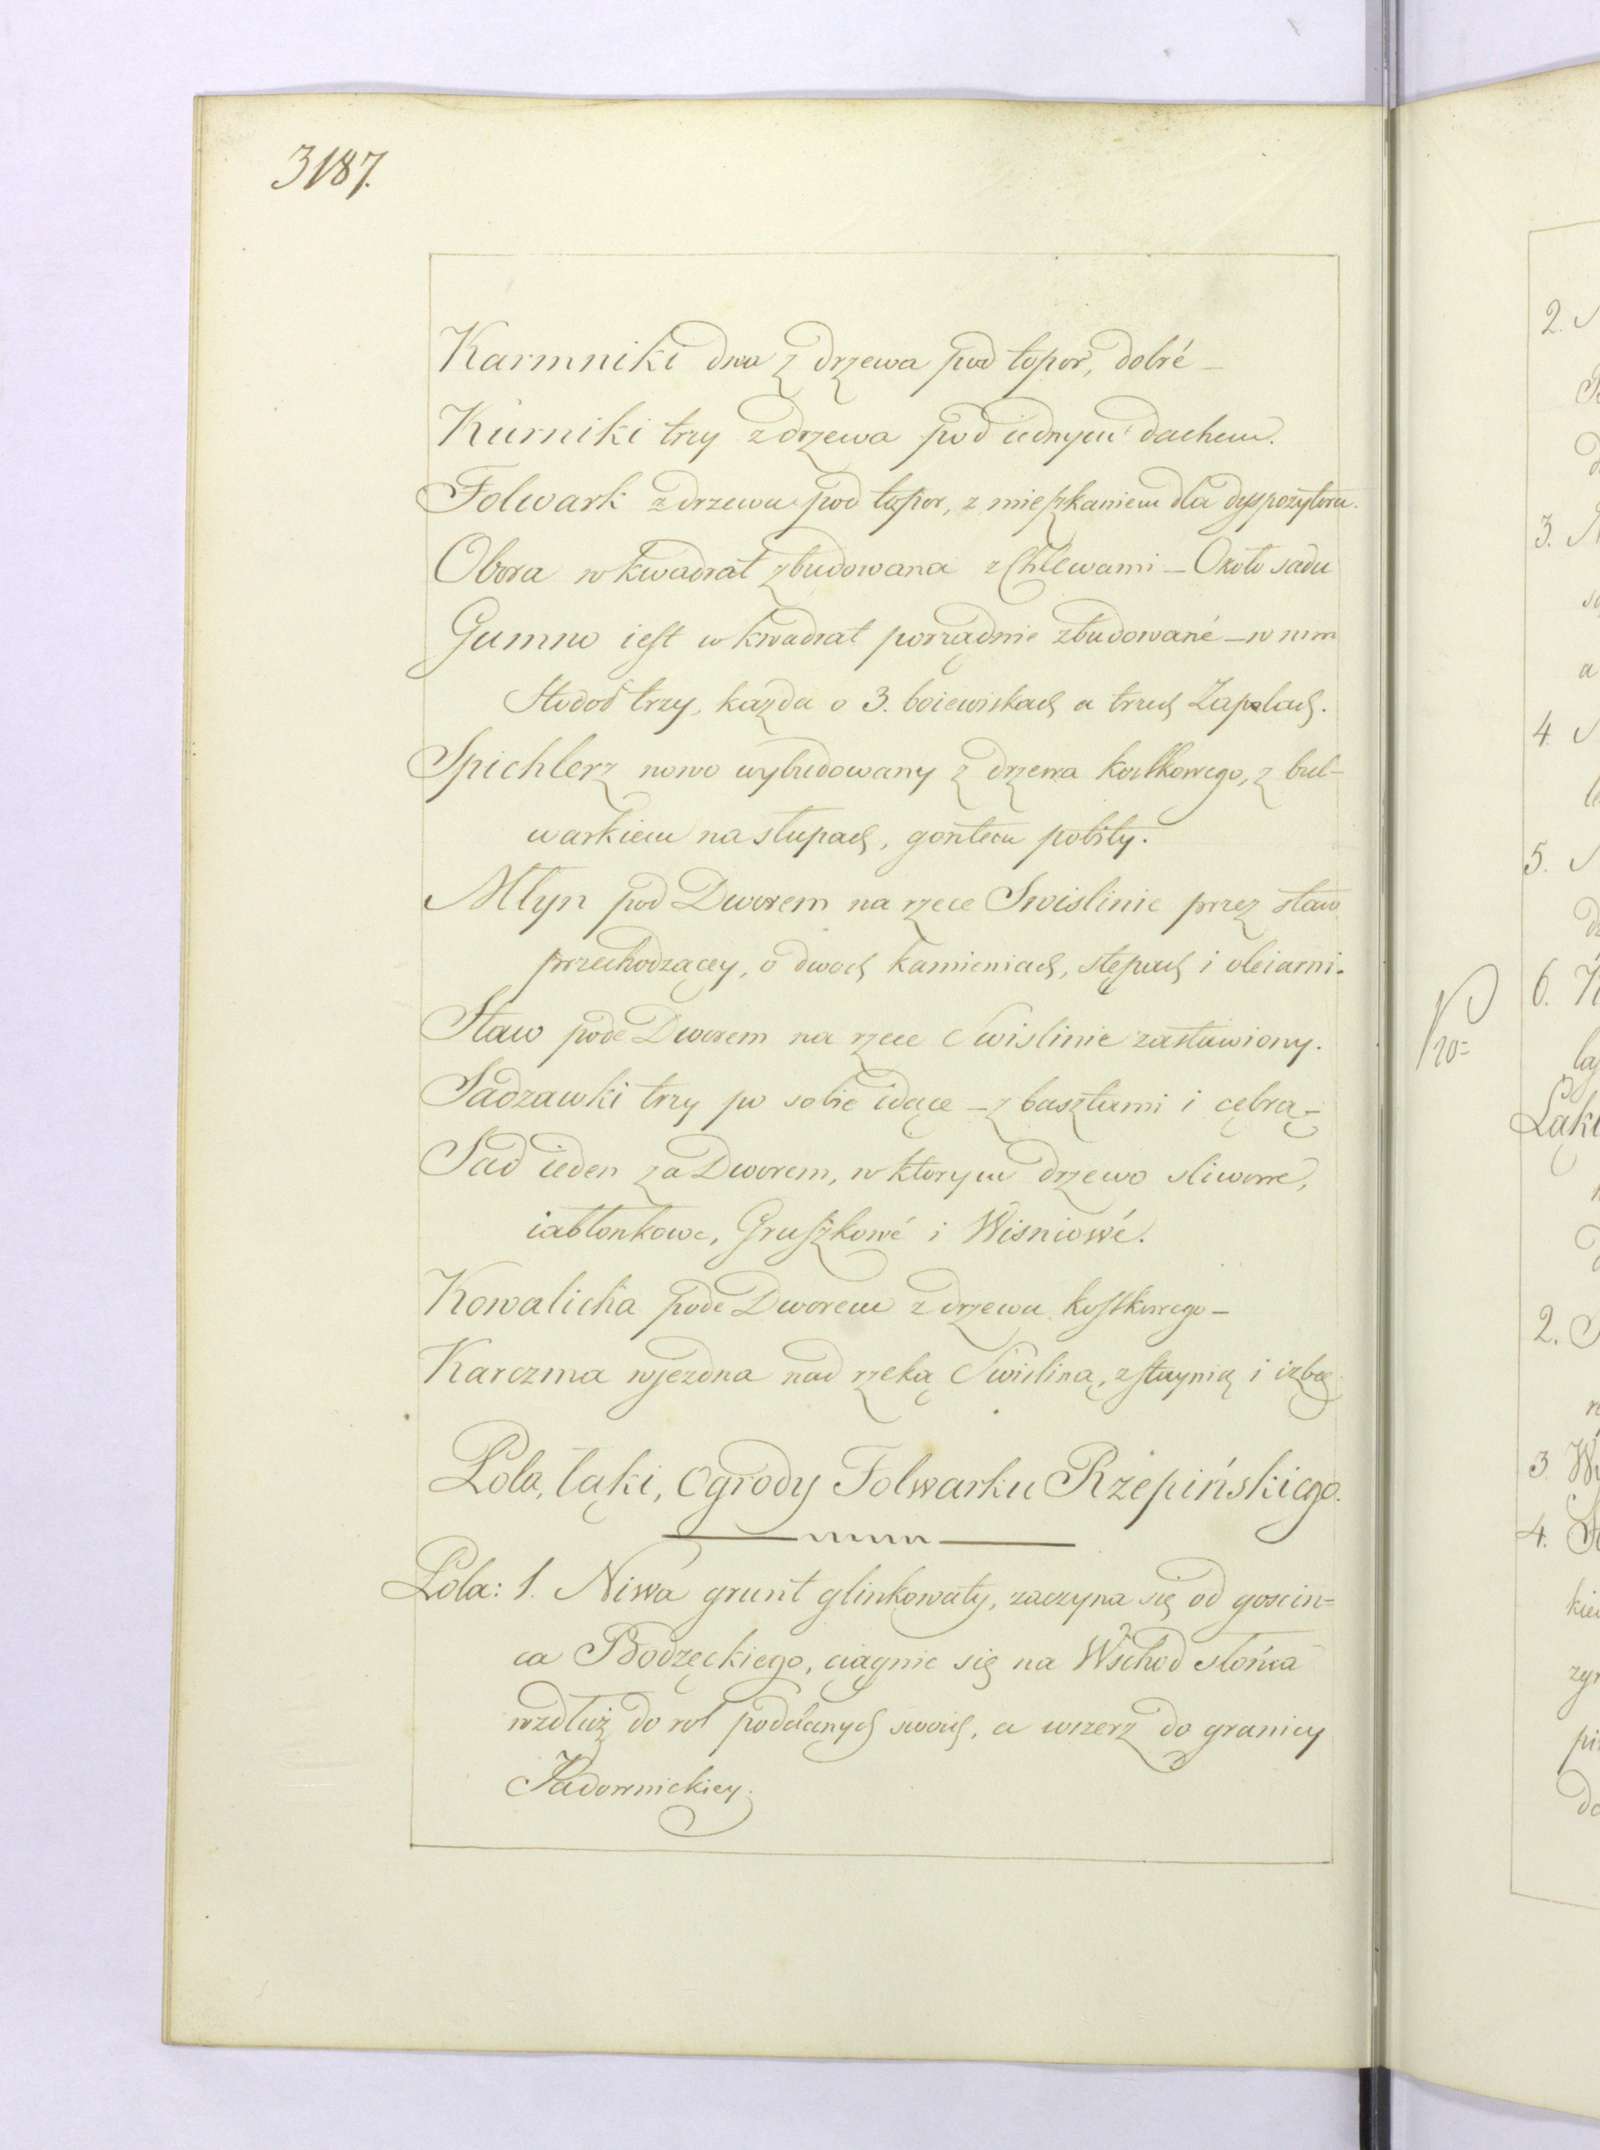 3187.
Karmniki dwa z drzewa pod topor, dobré –
Kurniki trzy z drzewa pod iednym dachem.
Folwark z drzewa pod topor, z mieszkaniem dla dyspozytora.
Obora w kwadrat zbudowana z Chlewami – Około sadu
Gumno iest w kwadrat porządnie zbudowané – w nim
Stodoł trzy, każda o 3. boiewiskach a trzech Zapolach.
Spichlerz nowo wybudowany z drzewa kostkowego, z bul-
warkiem na słupach, gontem pobity.
Młyn pod Dworem na rzece Swislinie przez staw
przechodzącey, o dwoch kamieniach, stępach i oleiarni.
Staw pode Dworem na rzece Swislinie zastawiony.
Sadzawki trzy po sobie idące – z basztami i cębrą –
Sad ieden za Dworem, w ktorym drzewo sliwowe,
iabłonkowe, Gruszkowé i Wisniowé.
Kowalicha pode Dworem z drzewa kostkowego –
Karczma wjezdna nad rzeką Swisliną, z staynią i izbą
Pola, łąki, Ogrody Folwarku Rzepińskiego.
Pola: 1. Niwa grunt glinkowaty, zaczyna się od goscin=
ca Bodzęckiego, ciągnie się na Wschod słońca
wzdłuż do rol poddanych swoich, a wszerz do granicy
Jadownickiey.
2.
3.
4.
5.
6.
20=
2.
3
4.